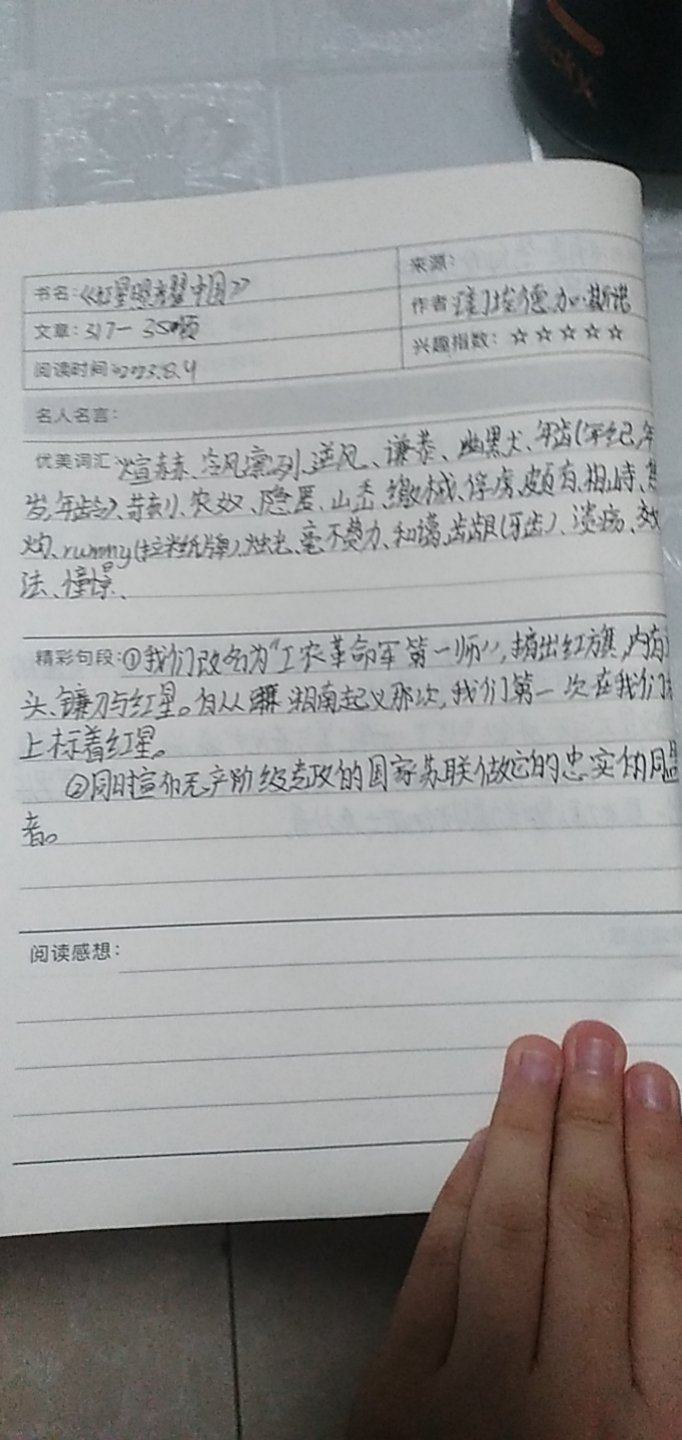 书名:《红星照耀中国》
来源:
作者
文章:317-350页
兴趣指数:☆☆☆☆☆
阅读时间 2023.8.4
名人名言:
优美词汇:煊赫、冷风凛冽、逆风、谦恭、幽默犬、年齿(年纪、年
岁,年龄)、苛刻、农奴、隐匿、山岙、缴械、俘虏、颇有、相峙、
灼、rummy(拉米纸牌)、烛光、毫不费力、和谒、齿龈(牙齿)、溃疡、
法、憧憬、
精彩句段:①我们改名为“工农革命军第一师”,擎出红旗,内有
头、镰刀与红星。自从湘南起义那次,我们第一次在我们
上标着红星。
②同时宣布无产阶级专政的国家苏联做它的忠实的同盟
者。
阅读感想: